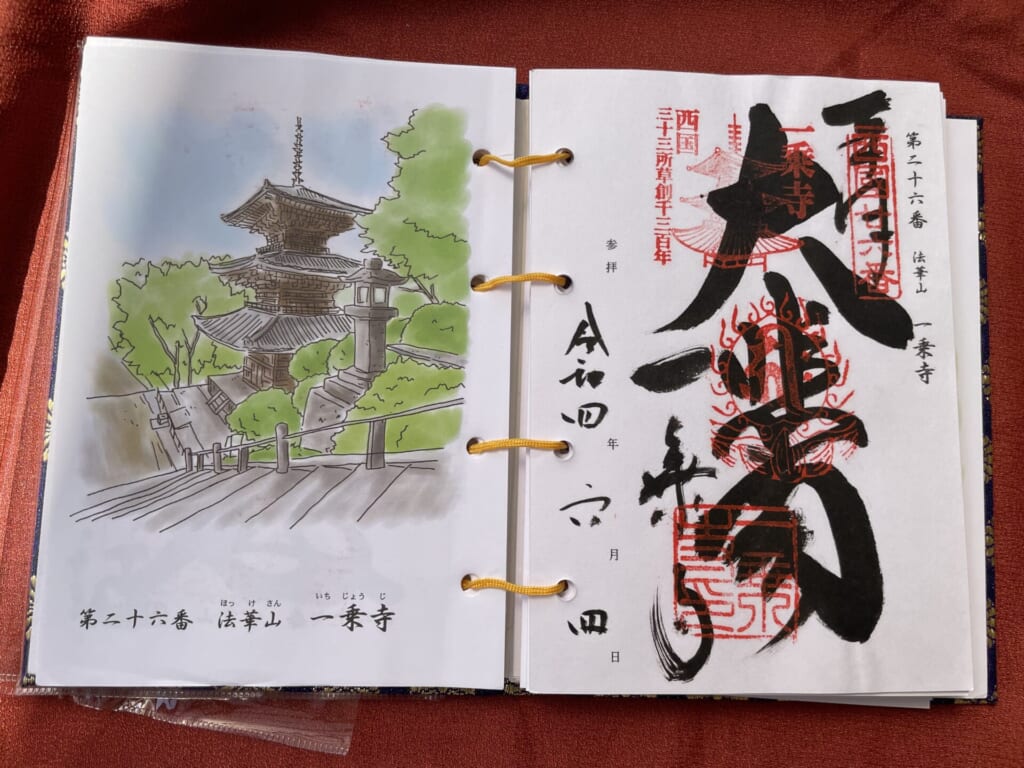 ほっ け さん いち じょう じ
第二十六番 法華山 一乗寺
第二十六番 法華山 一乗寺
西国廿六番
大悲閣
一乗寺
一乗寺
西国
三十三所草創千三百年
参拝 令和四年 六月 四日